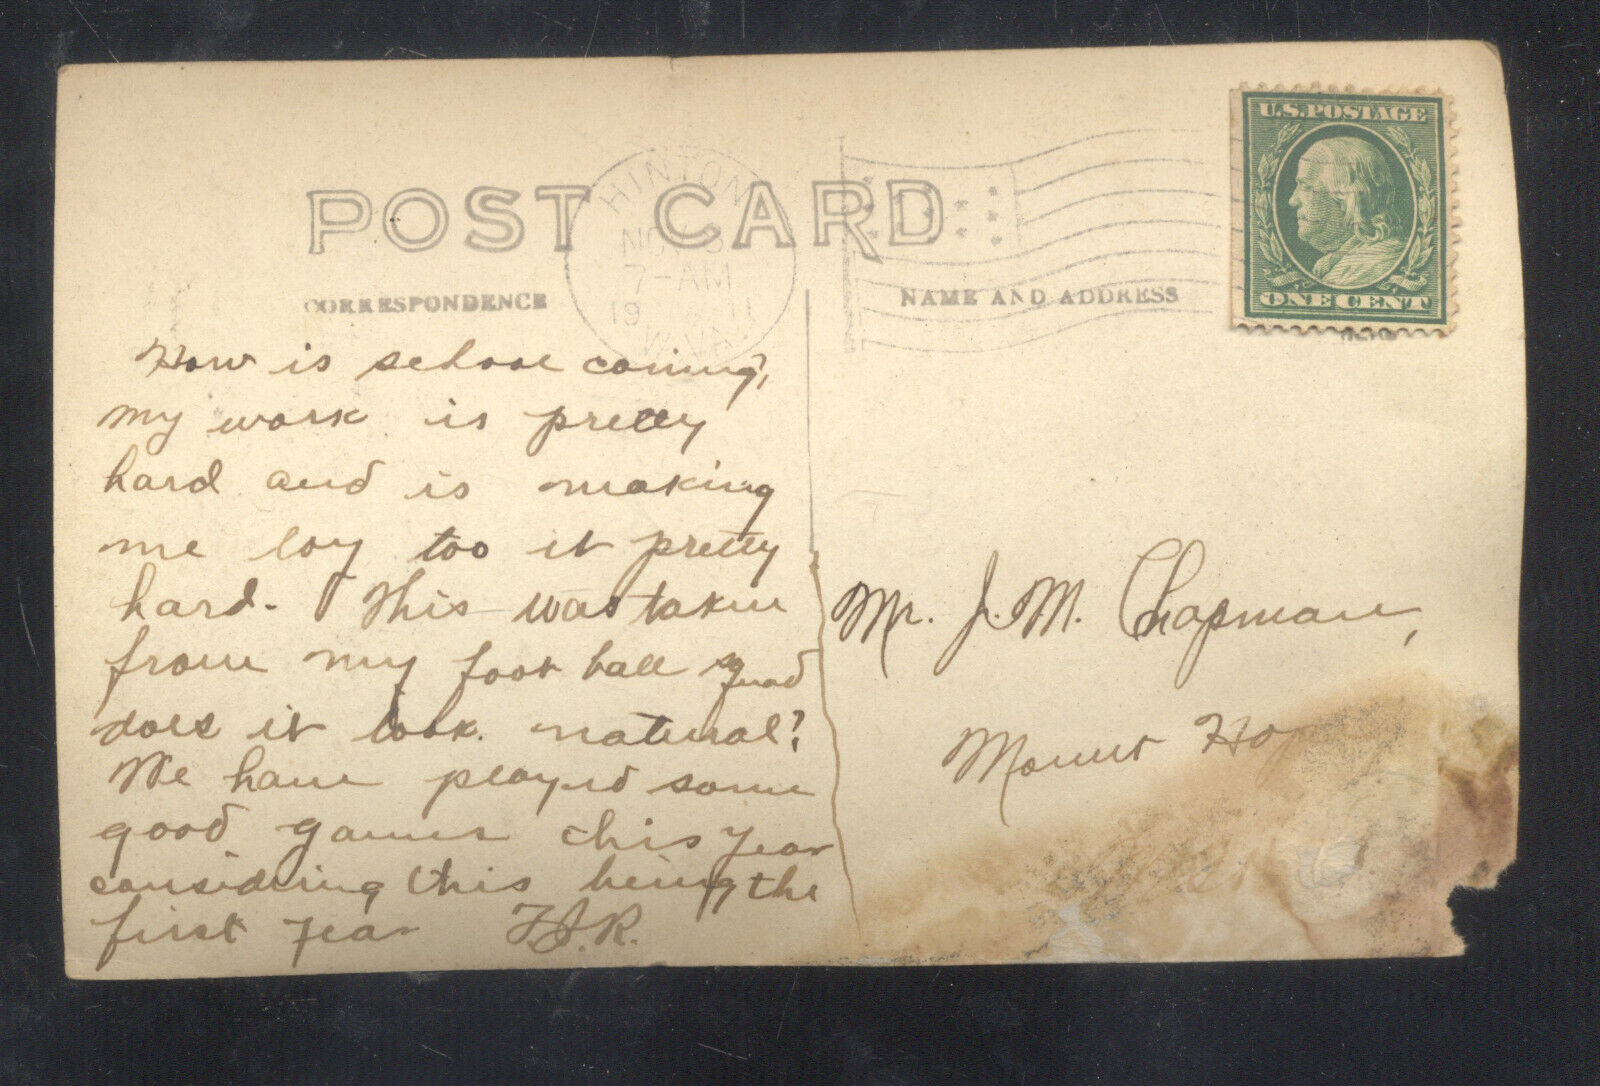 U.S. POSTAGE
ONE CENT
POST CARD
HINTON
7-AM
19 11
W.VA.
CORRESPONDENCE
NAME AND ADDRESS
How is school coming?,
my work is pretty
hard and is making
me loy too it pretty
hard. This was taken
from my foot ball squad
does it look. natural?
We have played some
good games this year
considering this being the
first year
Mr. J. M. Chapman,
Mount